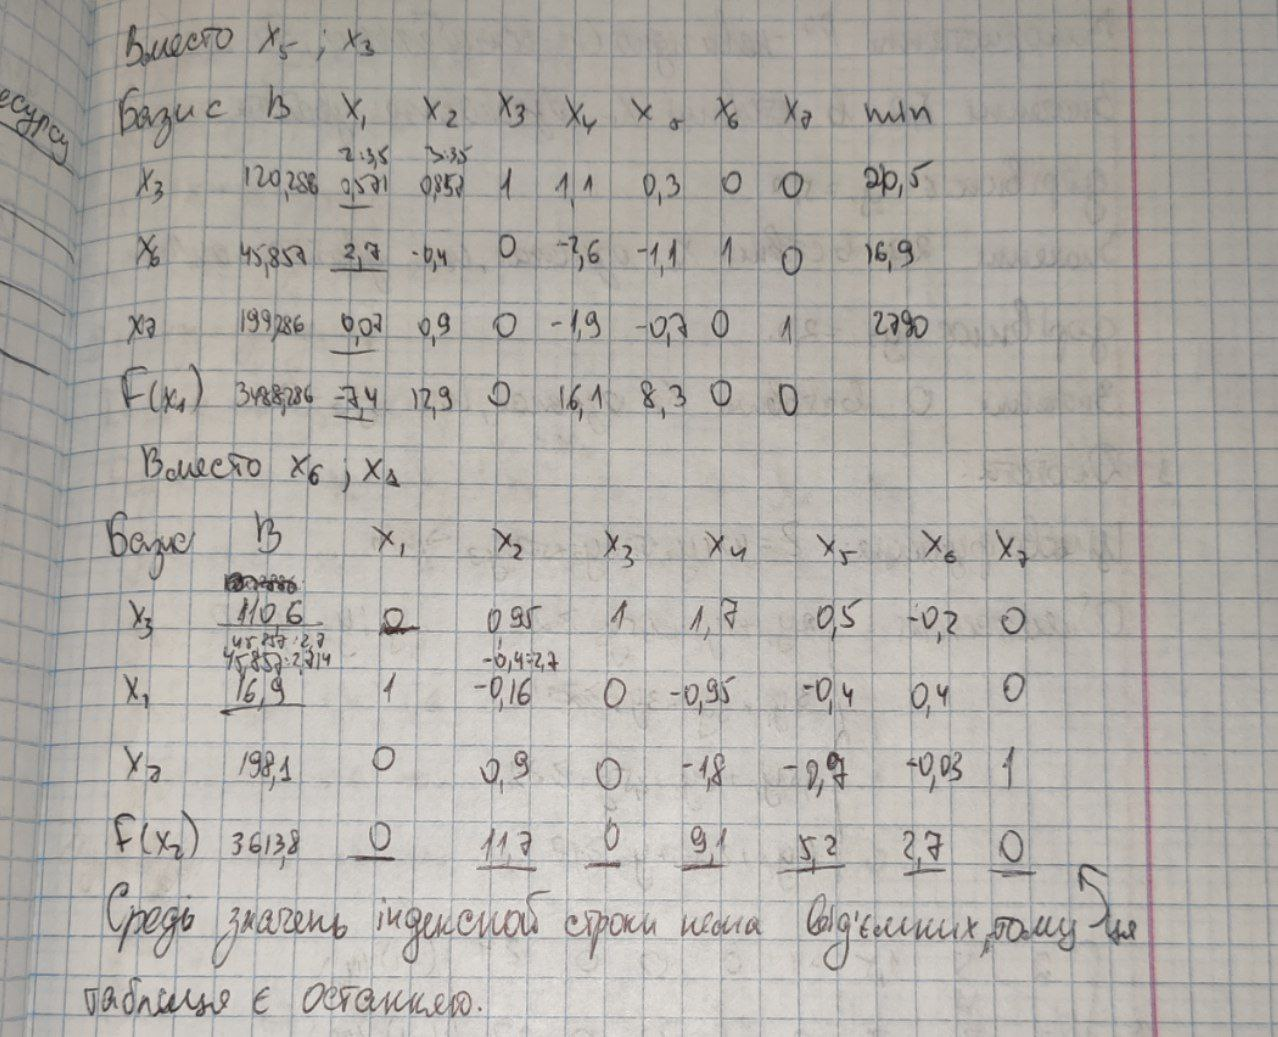 есурсу
Вместо X5 ; X3
Базис B X1 X2 X3 X4 X5 X6 X7 min
2:3,5 3:3,5
X3 120,286 0,571 0,857 1 1,1 0,3 0 0 210,5
X6 45,857 2,7 -0,4 0 -2,6 -1,1 1 0 16,9
X7 199,286 0,07 0,9 0 -1,9 -0,7 0 1 2790
F(X1) 3488,286 -7,4 12,9 0 16,1 8,3 0 0
Вместо X6 ; X1
Базис B X1 X2 X3 X4 X5 X6 X7
X3 110,6 0 0,95 1 1,7 0,5 -0,2 0
45,857:2,7
45,857:2,714 -0,4:2,7
X1 16,9 1 -0,16 0 -0,95 -0,4 0,4 0
X7 198,1 0 0,9 0 -1,8 -0,7 -0,03 1
F(X2) 3613,8 0 11,7 0 9,1 5,2 2,7 0
Средь значень індексной строки нема від'ємних, тому ця
таблиця є останнею.